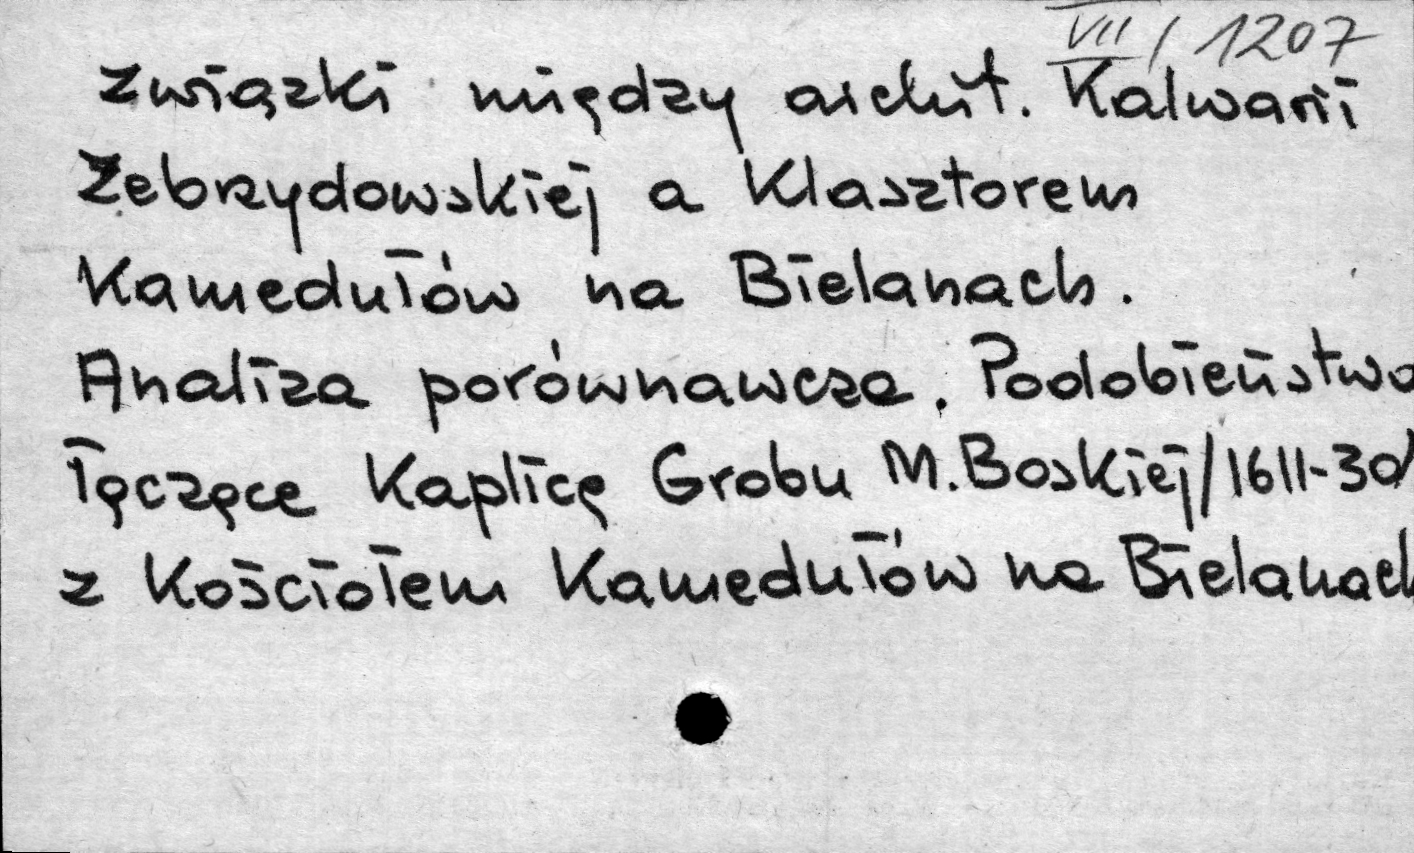 VII/1207
Związki między archit. Kalwarii
Zebrzydowskiej a Klasztorem
Kamedułów na Bielanach.
Analiza porównawcza. Podobieństwo
łączące Kaplicę Grobu M. Boskiej/1611-30/
z Kościołem Kamedułów na Bielanach